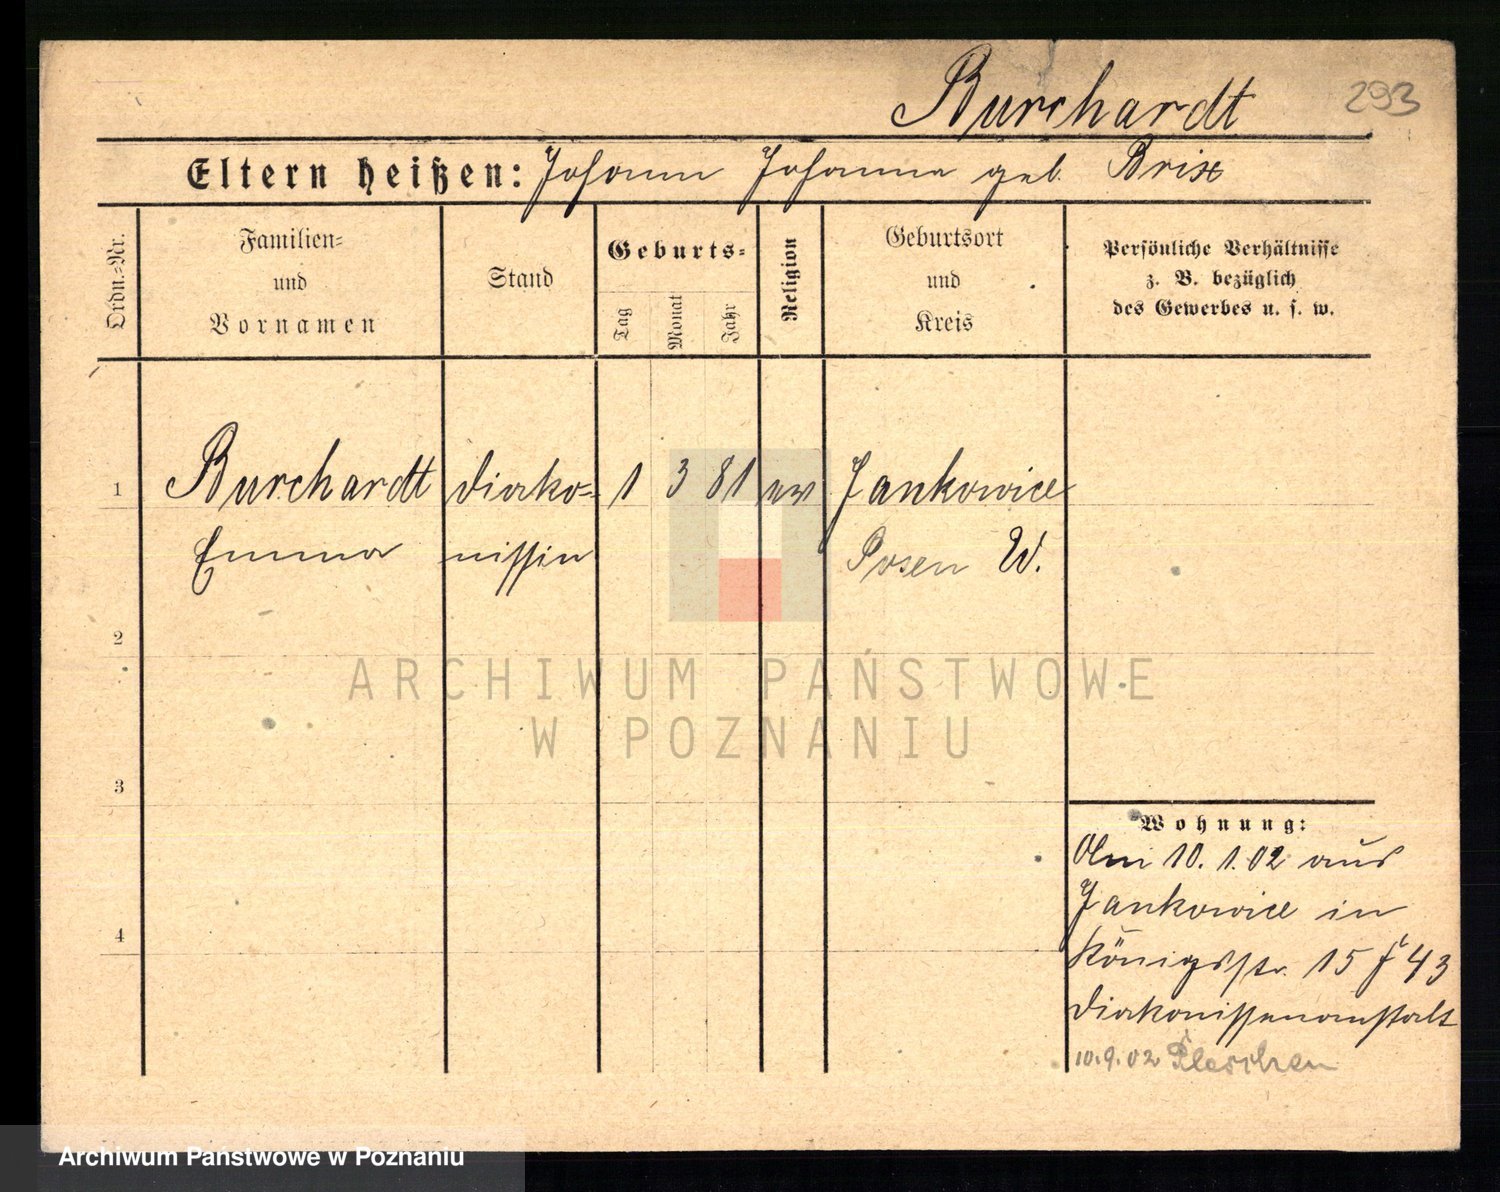 Burchardt
293
Eltern heißen: Johann Johanna geb. Brix
Ordn.-Nr.
Familien-
und
Vornamen
Stand
Geburts-
Tag
Monat
Jahr
Religion
Geburtsort
und
Kreis
Persönliche Verhältnisse
z. B. bezüglich
des Gewerbes u. s. w.
1 Burchardt Diako- 1 3 81 ev Jankowice
Emma nissin Posen W.
2
3
4
ARCHIWUM PAŃSTWOWE
W POZNANIU
Wohnung:
Am 10.1.02 aus
Jankowice in
Königsstr. 15 43
Diakonissenanstalt
10.9.02 Pleschen
Archiwum Państwowe w Poznaniu